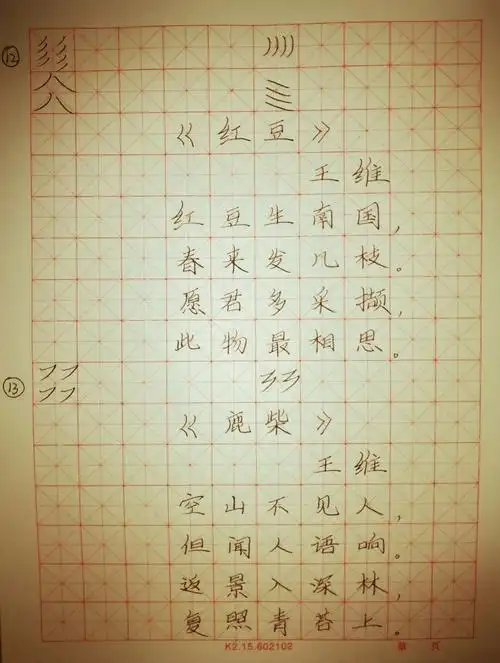 ⑫
《红豆》
王维
红豆生南国，
春来发几枝。
愿君多采撷，
此物最相思。
⑬
《鹿柴》
王维
空山不见人，
但闻人语响。
返景入深林，
复照青苔上。
K2.15.602102 第 页